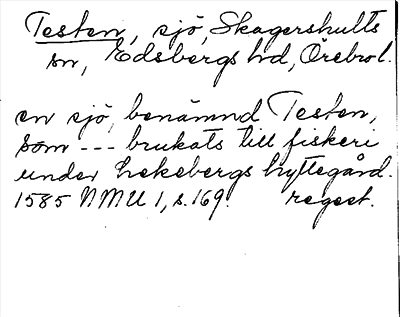 Testen, sjö, Skagershults
sn, Edsbergs hd, Örebro l.
en sjö, benämnd Testen,
som --- brukats till fiskeri
under Lekebergs hyttegård.
1585 NMU 1, s. 169. regest.